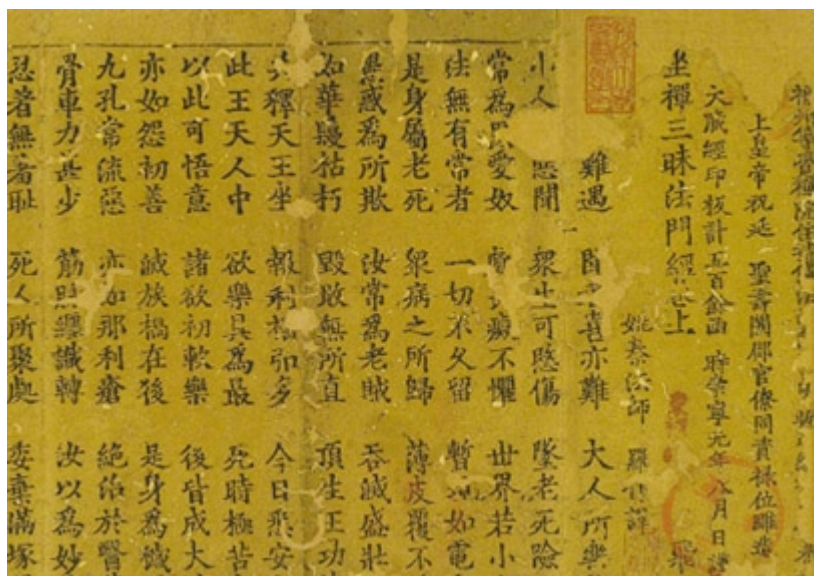 上皇帝祝延 聖壽闔郡官僚同資祿位雕造
大藏經印板計五百餘函 時崇寧元年八月日謹
坐禪三昧法門經卷上 飛
姚秦法師 羅什譯
難遇 亦難 大人所樂
小人 惡聞 衆生可愍傷 墜老死險
常為 愛奴 癡不懼 世界若小
法無有常者 一切不久留 暫 如電
是身屬老死 衆病之所歸 薄皮覆不
愚惑為所欺 汝常為老賊 吞滅盛壯
如華鬘枯朽 毀敗無所直 頂生王功
釋天王坐 報利福弘多 今日悉安
此王天人中 欲樂具為最 死時極苦
以此可悟意 諸欲初軟樂 後皆成大
亦如怨初善 滅族禍在後 是身為穢
九孔常流惡 亦如那利瘡 絕治於醫
骨車力甚少 筋脉纏識轉 汝以為妙
忍著無羞恥 死人所聚處 委棄滿塚